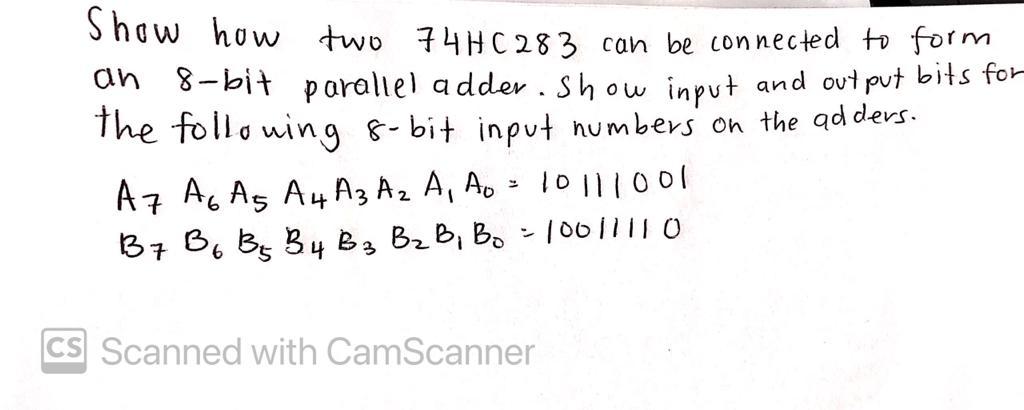 Show how two 74HC283 can be connected to form
an 8-bit parallel adder. Show input and output bits for
the following 8-bit input numbers on the adders.
A7 A6 A5 A4 A3 A2 A1 A0 = 10111001
B7 B6 B5 B4 B3 B2 B1 B0 = 10011110
CS Scanned with CamScanner